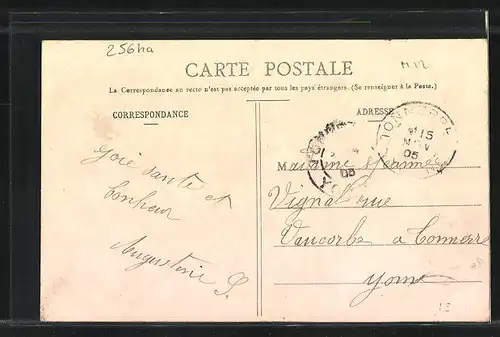 256na
M12
CARTE POSTALE
La Correspondance au recto n'est pas acceptée par tous les pays étrangers. (Se renseigner à la Poste.)
CORRESPONDANCE
ADRESSE
TONNERRE
15
NOV
05
05
Madame Jeanne
Vignal rue
Vaucorbe à Tonnerre
Yonne
Joie santé et
bonheur
Augustine S.
12